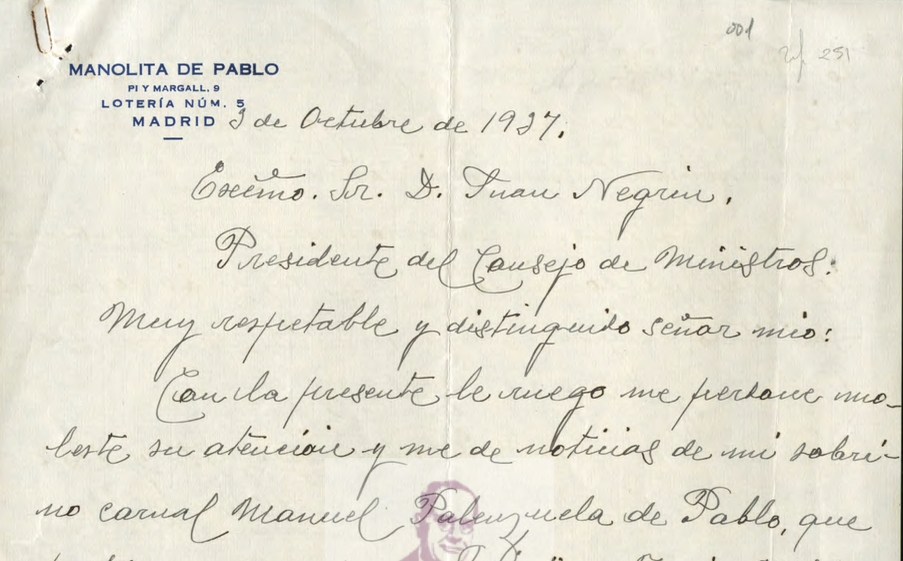 001
251
MANOLITA DE PABLO
PI Y MARGALL, 9
LOTERÍA NÚM. 5
MADRID
3 de Octubre de 1937.
Excmo. Sr. D. Juan Negrin.
Presidente del Consejo de Ministros.
Muy respetable y distinguido señor mio:
Con la presente le ruego me perdone mo-
leste su atención y me de noticias de mi sobri-
no carnal Manuel Palenzuela de Pablo, que